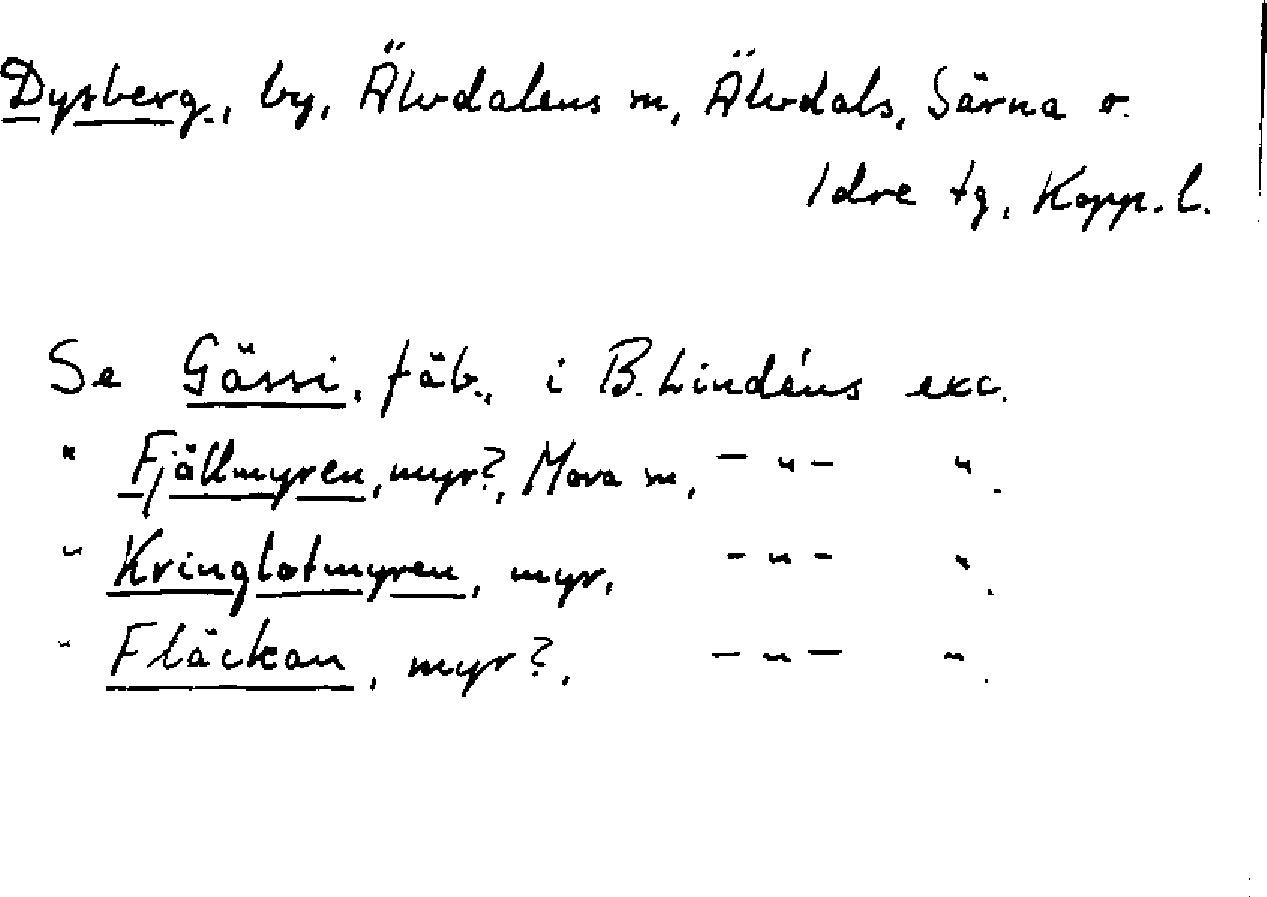 Dysberg, by, Älvdalens m, Älvdals, Särna o.
Idre tg, Kopp. l.
Se Gässi, fäb., i B. Lindéns exc.
" Fjällmyren, myr?, Mora m, – " – ".
" Kringlotmyren, myr, – " – ".
" Fläckan, myr?, – " – ".